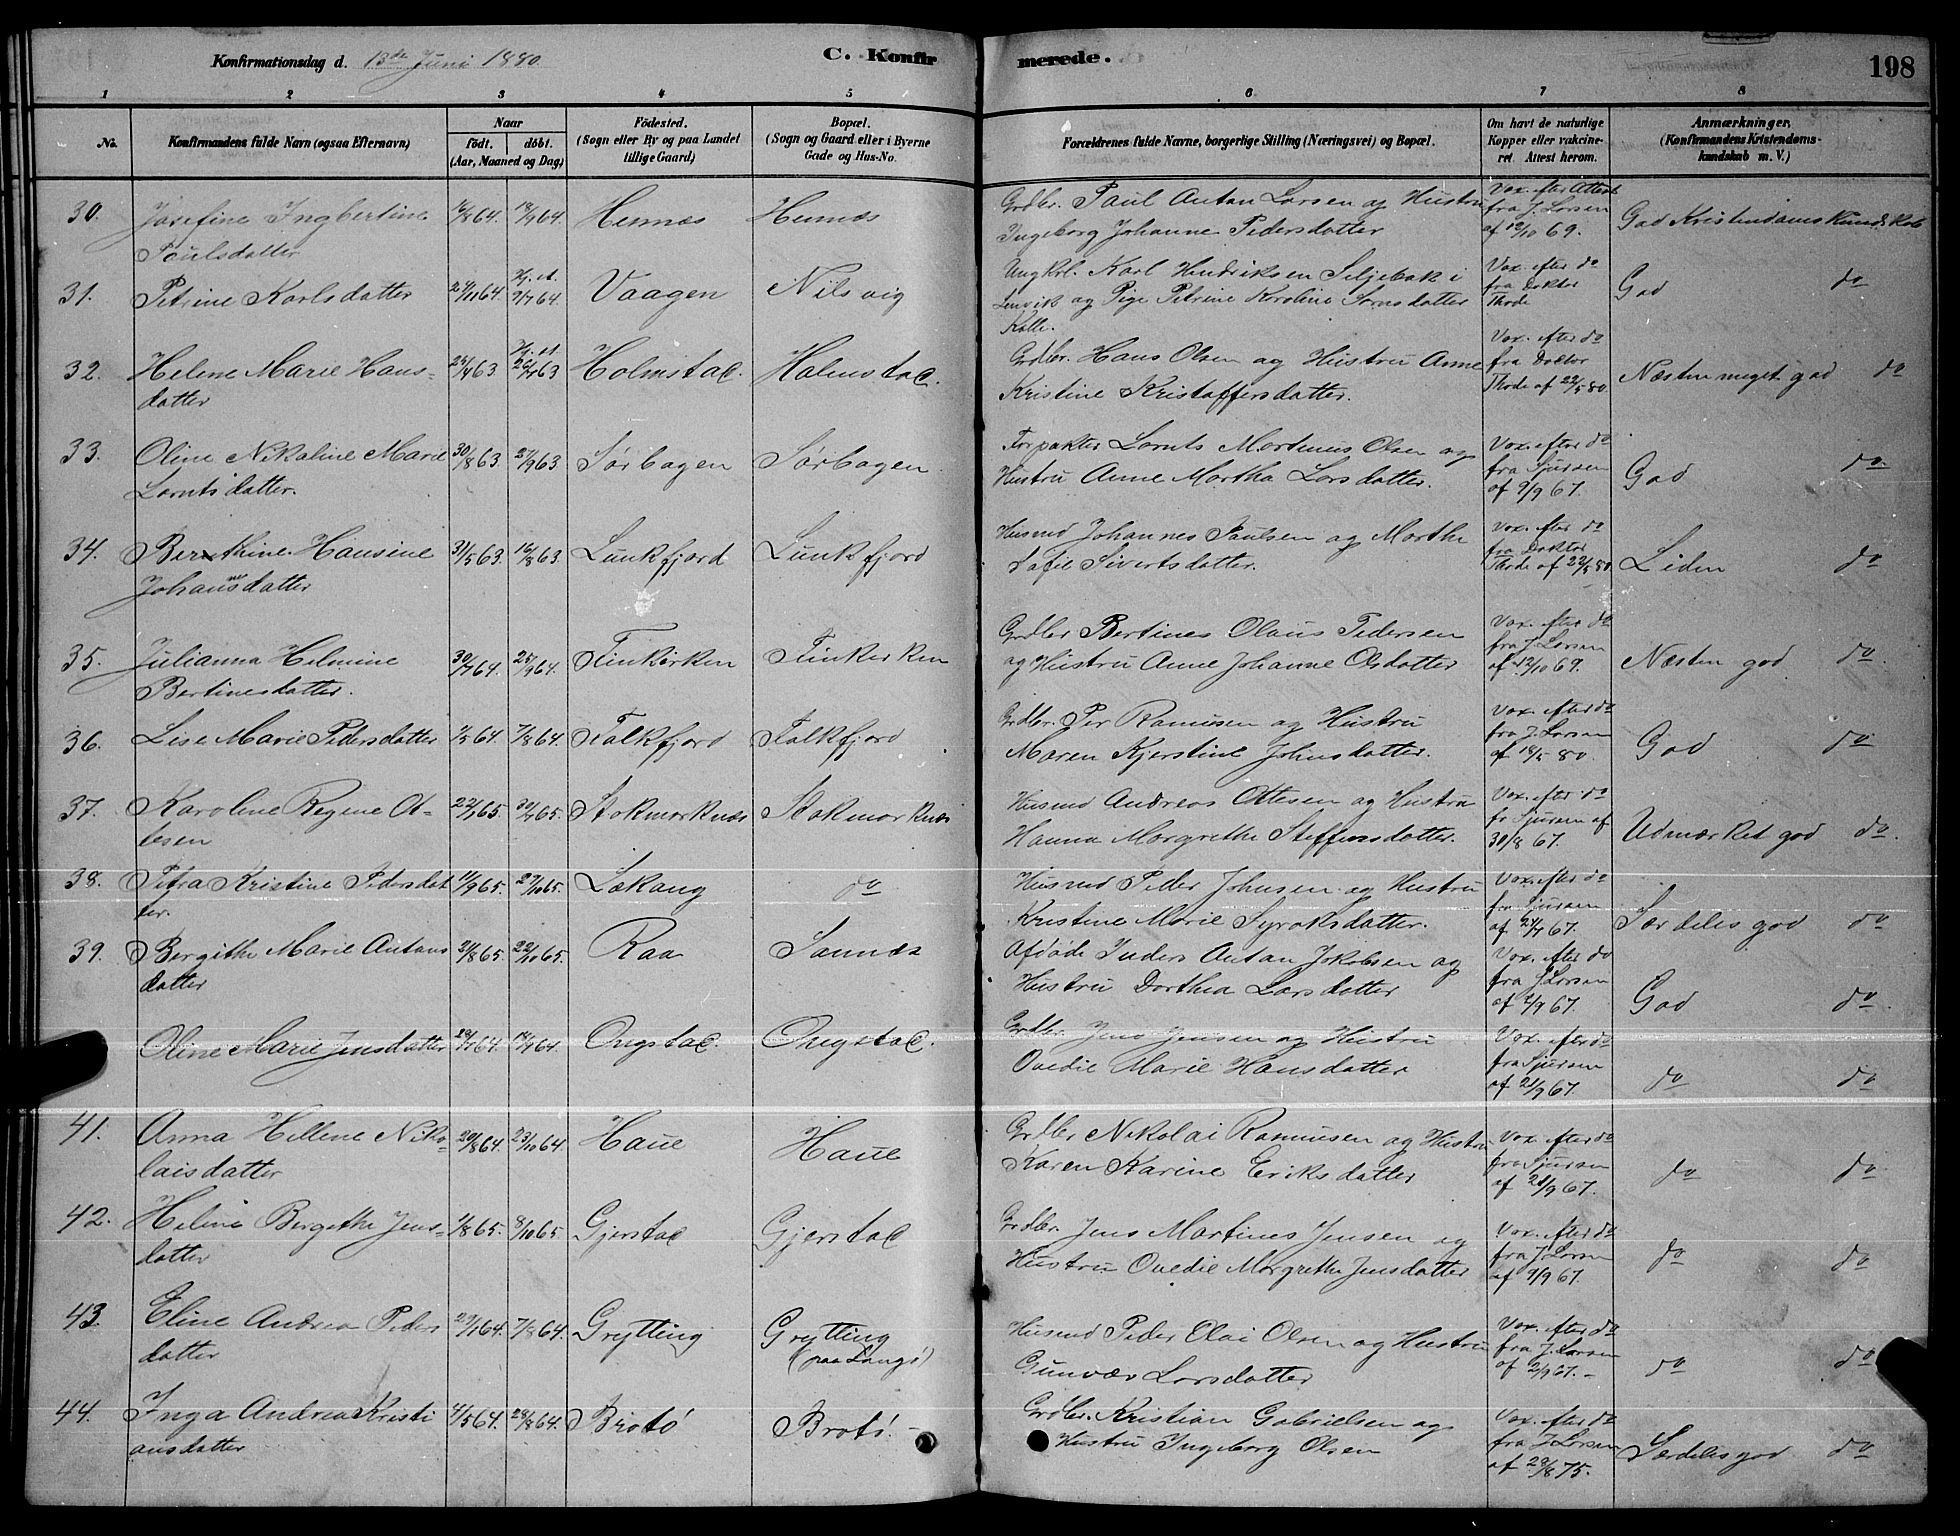 Konfirmationsdag d. 13de Juni 1880.
C. Konfirmerede.
198
1 2 3 4 5 6 7 8
No.
Konfirmandens fulde Navn (ogsaa Efternavn)
Naar
født. døbt.
(Aar, Maaned og Dag)
Fødested.
(Sogn eller By og paa Landet
tillige Gaard)
Bopæl.
(Sogn og Gaard eller i Byerne
Gade og Hus-No.
Forældrenes fulde Navne, borgerlige Stilling (Næringsvei) og Bopæl.
Om havt de naturlige
Kopper eller vakcine-
ret. Attest herom.
Anmærkninger,
(Konfirmandens Kristendoms-
kundskab m. V.)
30. Josefine Ingbertine 16/8 64. 18/9 64. Hennæs Hennæs Grdbr. Paul Antan Larsen og Hustru Vax. efter Attest
Paulsdatter Ingeborg Johanne Pedersdatter fra J. Larsen
af 12/10 69. God Kristendomskundskab
31. Petrine Karlsdatter 24/11 64. Hj. d. Vaagen Nilsvig Ungkrl. Karl Hendriksen Seljebak i Vax. efter do
Lenvik og Pige Petrine Karoline fra Doktor
Thode God do
32. Helene Marie Hans- 24/4 63 Hj. d. Holmstad. Holmstad. Grdbr. Hans Olsen og Hustru Anne Vax. efter do
datter Kristine Kristaffersdatter. fra Doctor
Thode af 22/5 80. Næsten meget god do
33. Oline Nikoline Marie 30/8 63. 27/9 63 Sørbogen Sørbogen Forpakter Lornts Martinus Olsen og Vax. efter do
Lorntsdatter. Hustru Anne Martha Larsdatter. fra Sjursen
af 9/9 67. God do.
34. Berthine Hansine 31/5 63. 16/8 63. Lunkfjord Lunkfjord Husmd Johannes Paulsen og Marthe Vax. efter do
Johansdatter Sofie Sivertsdatter. fra Doktor
Thode af 22/5 80. Liden do
35. Julianna Helmine 30/7 64. 25/9 64. Finkirken Finkirken Grdbr Bertines Olaus Pedersen Vax. efter do
Bertinesdatter. og Hustru Anne Johanne Olsdatter fra J. Larsen
af 12/10 69. Næsten god do.
36. Lise Marie Pedersdatter 1/5 64. 7/8 64. Falkfjord Falkfjord Grdbr. Per Ramusen og Hustru Vax. efter do
Maren Kjerstine Johnsdatter. fra J. Larsen
af 18/5 80. God do
37. Karoline Regine Ot- Stokmarknæs Stokmarknæs Husmd Andreas Ottesen og Hustru Vax. efter do
tesen Hanna Margrethe Steffensdatter. fr Sjursen af
30/8 67. Udmærket god do.
38. Petra Kristine Pedersdat 11/9 65. 27/10 65. Lækang do Husmd Peder Johnsen og Hustru Vax. efter do
ter. Kristine Marie Syraksdatter. fr Sjursen
af 24/7 67. Særdeles god do
39. Bergithe Marie Antons 21/8 65. 22/10 65. Raa Sannæs Afdøde Inders Antan Jakobsen og Vax. efter do
datter Hustru Dorthea Larsdatter fra J Larsen
af 2/9 67. God do.
Oline Marie Jensdatter Ongstad. Ongstad. Grdbr. Jens Jensen og Hustru Vax. efter do
Ovedie Marie Hansdatter fra Sjursen
af 21/9 67. do do
41. Anna Hellene Niko- 20/8 64. 23/10 64. Haue Haue Grdbr Nikolai Ramusen og Hustru Vax. efter do
laisdatter Karen Karine Eriksdatter fra Sjursen
af 21/9 67. do do
42. Heline Bergithe Jens- 1/8 65. 8/10 65. Gjerstad Gjerstad Grdbr. Jens Martines Jensen og Vax. efter do
datter Hustru Ovedie Margrethe Jensdatter fra J. Larsen
af 9/9 67. do do
43. Eline Andrea Peders 7/8 64. Grytting Grytting Husmd Peder Olai Olsen og Hustru Vax. efter do
datter (paa Langø) Gunvær Larsdatter fra J. Larsen
af 2/9 67. do do
44. Inga Andrea Kristi 4/5 64. 28/8 64. Brotø Brotø. Grdbr. Kristian Gabrielsen og Vax. efter do
ansdatter Hustru Ingeborg Olsen fra J Larsen
af 28/8 75. Særdeles god do